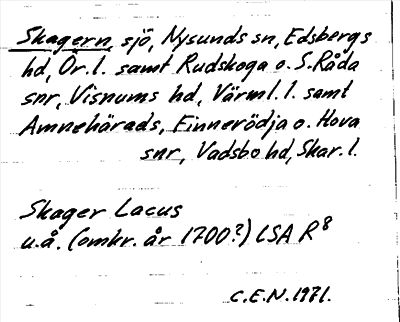 Skagern sjö, Nysunds sn, Edsbergs
hd, Ör.l. samt Rudskoga o. S.Råda
snr, Visnums hd, Värml.l. samt
Amnehärads, Finnerödja o. Hova
snr, Vadsbo hd, Skar.l.
Skager Lacus
u.å. (omkr. år 1700?) LSA R8
C.E.N.1971.